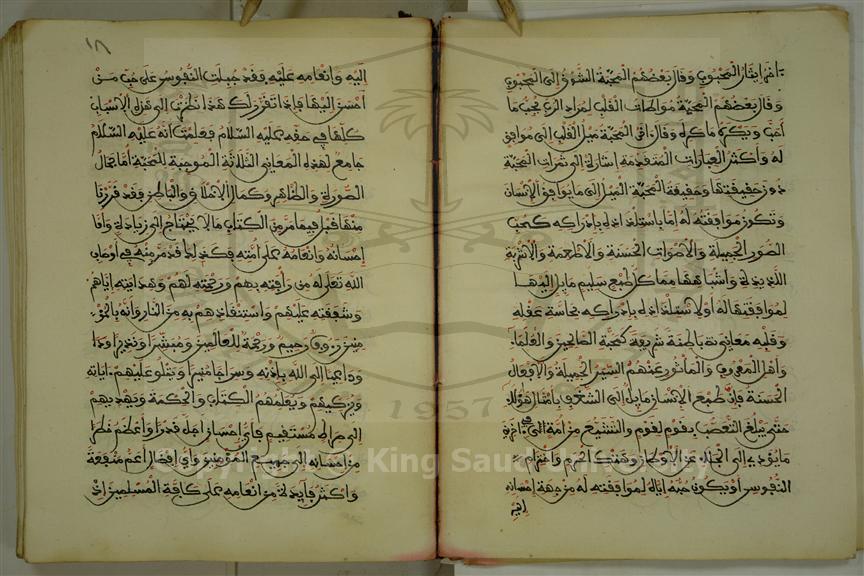 اخر ايثار المحبوب وقال بعضهم المحبة الشوق الى المحبوب
وقال بعضهم المحبة مواطاة القلب لمراد الرب يحب ما
احب ويكره ما كره وقال اخر المحبة ميل القلب الى موافق
له واكثر العبارات المتقدمة اشارة الى ثمرات المحبة
دون حقيقتها وحقيقة المحبة الميل الى ما يوافق الانسان
وتكون موافقته له اما باستلذاذه بادراكه كحب
الصور الجميلة والاصوات الحسنة والاطعمة والاشربة
اللذيذة واشباهها مما كل طبع سليم مايل اليها
لموافقتها له او لاستلذاذه بادراكه بحاسة عقله
وقلبه معاني باطنة شريفة كمحبة الصالحين والعلماء
واهل المعروف والماثور عنهم السير الجميلة والافعال
الحسنة فان طبع الانسان مايل الى الشغف بامثال هؤلاء
حتى يبلغ التعصب بقوم لقوم والتشيع من امة في اخرى
ما يؤدي الى الجلاء عن الاوطان وهتك الحرم واخترام
النفوس او يكون حبه اياه لموافقته له من جهة احسانه
اليه وانعامه عليه فقد جبلت النفوس على حب من
احسن اليها فاذا تقرر لك هذا نظرت الى هذه الاسباب
كلها في حقه عليه السلام فعلمت انه عليه السلام
جامع لهذه المعاني الثلاثة الموجبة للمحبة اما جمال
الصورة والظاهر وكمال الاخلاق والباطن فقد قررنا
منها قبل فيما مر من الكتاب ما لا يحتاج الى زيادة واما
احسانه وانعامه على امته فكذلك قد مر منه في اوصاف
الله تعلى له من رافته بهم ورحمته لهم وهدايته اياهم
وشفقته عليهم واستنقاذهم به من النار وانه بالمو
منين رءوف رحيم ورحمة للعالمين ومبشرا ونذيرا
وداعيا الى الله باذنه وسراجا منيرا ويتلو عليهم اياته
ويزكيهم ويعلمهم الكتاب والحكمة ويهديهم
الى صراط مستقيم فاي احسان اجل قدرا واعظم خطرا
من احسانه الى جميع المؤمنين واي افضال اعم منفعة
واكثر فايدة من انعامه على كافة المسلمين اذ
Copyright © King Saud University
1957